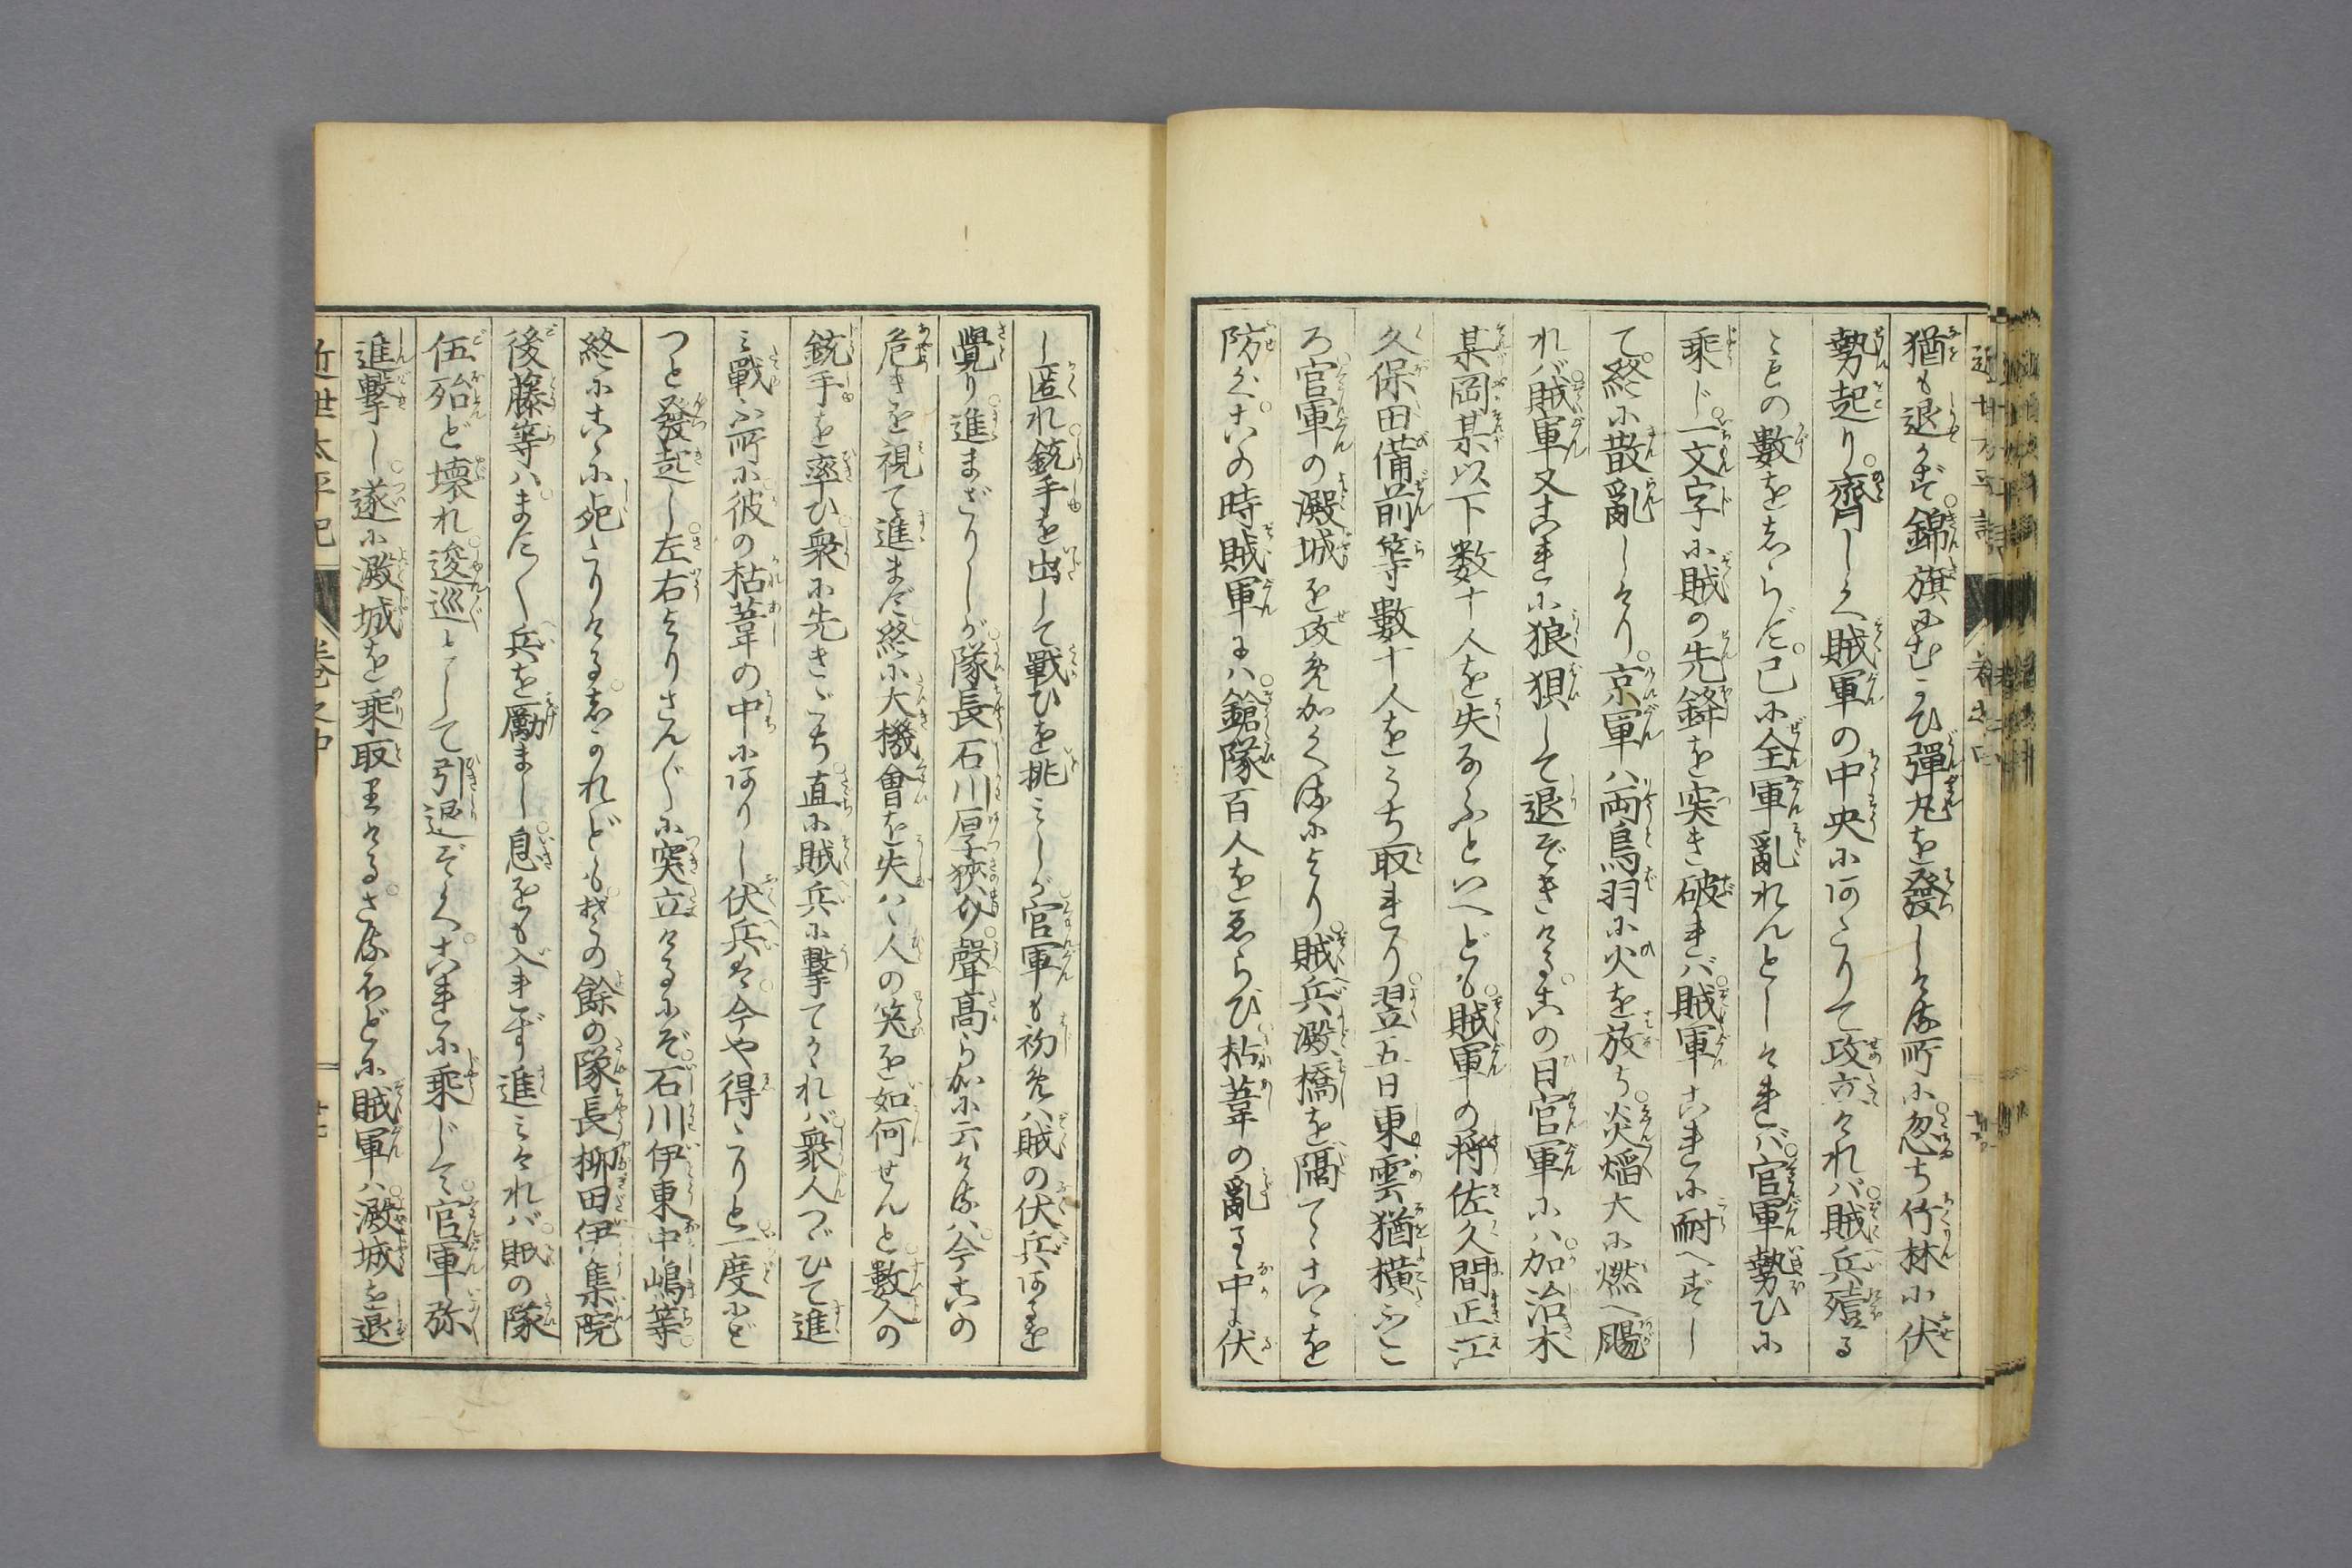 猶も退かず錦旗にむかひ彈丸を發しける所に忽ち竹林に伏
勢起り齊しく賊軍の中央にあたりて攻立けれバ賊兵殪る
ゝもの數をしらず已に全軍亂れんとしけれバ官軍勢ひに
乘じ一文字に賊の先鋒を突き破れバ賊軍これに耐へずし
て終に散亂しけり京軍ハ両鳥羽に火を放ち炎熖大に燃へ颺
れバ賊軍又これに狼狽して退ぞきける此の日官軍にハ加治木
某岡某以下数十人を失なふといへども賊軍の将佐久間正江
久保田備前等數十人をうち取れり翌五日東雲猶横ふこ
ろ官軍の澱城を攻免かくるにより賊兵澱橋を隔てゝこゝを
防ぐこの時賊軍よハ鎗隊百人をゑらび枯葦の亂る中よ伏
し匿れ銃手を出して戰ひを挑みしが官軍も初免ハ賊の伏兵あるを
覺り進まざりしが隊長石川厚狹介聲高らかに云けるハ今この
危きを視て進まだ終に大機會を失ハゝ人の笑を如何せんと數人の
銃手を率ひ衆に先きごち直に賊兵に擊てかゝれバ衆人つゞひて進
ミ戰ふ所に彼の枯葦の中にありし伏兵は今や得たりと一度にど
つと發起し左右よりさん〲に突立けるにぞ石川伊東中嶋等
終にこゝに死たりけるしかれども其の餘の隊長柳田伊集院
後藤等ハまたく兵を勵まし息をも入れず進ミけれバ賊の隊
伍殆ど壊れ逡巡として引退ぞくこれに乘じて官軍弥
進擊し遂に澱城を乘取りけるさるほどに賊軍ハ澱城を退
近世太平記 巻之中